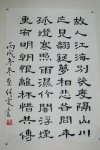 故人江海别幾度隔山川
乍見翻疑夢相悲各問年
孤燈寒照雨竹暗浮烟
更有明朝恨離杯惜共傳
丙戌年冬書